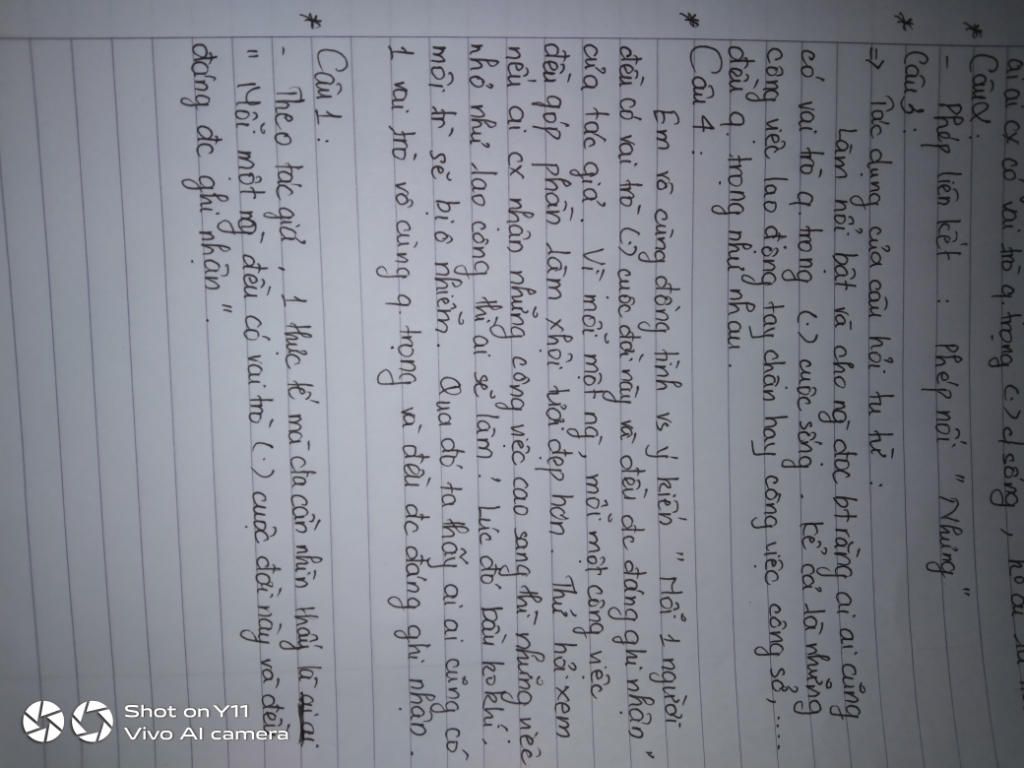 ai ai cx có vai trò q.trọng (.) đ sống,
* Câu 2:
- Phép liên kết : Phép nối "Nhưng"
* Câu 3:
=> Tác dụng của câu hỏi tu từ :
Làm nổi bật và cho ng đọc bt rằng ai ai cũng
có vai trò q.trọng (.) cuộc sống. Kể cả là những
công việc lao động tay chân hay công việc công sở,...
đều q.trọng như nhau.
* Câu 4:
Em vô cùng đồng tình vs ý kiến "Mỗi 1 người
đều có vai trò (.) cuộc đời này và đều đc đáng ghi nhận"
của tác giả. Vì mỗi một ng, mỗi một công việc
đều góp phần làm xhội tươi đẹp hơn. Thử hỏi xem
nếu ai cx nhận những công việc cao sang thì những việc
nhỏ như lao công thì ai sẽ làm! Lúc đó bầu ko khí,
môi tr sẽ bị ô nhiễm. Qua đó ta thấy ai ai cũng có
1 vai trò vô cùng q.trọng và đều đc đáng ghi nhận.
* Câu 1:
- Theo tác giả, 1 thực tế mà cta cần nhìn thấy là
" Mỗi một ng đều có vai trò (.) cuộc đời này và đều
đáng đc ghi nhận".
Shot on Y11
Vivo AI camera